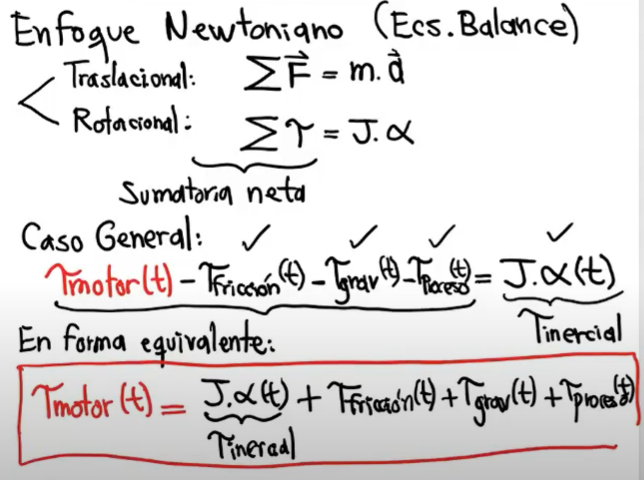 Enfoque Newtoniano (Ecs. Balance)
Traslacional: ∑F⃗ = m.a⃗
Rotacional: ∑τ = J.α
Sumatoria neta
Caso General: ✓ ✓ ✓ ✓
τmotor(t) - τfricción(t) - τgrav(t) - τproceso(t) = J.α(t)
τinercial
En forma equivalente:
τmotor(t) = J.α(t) + τfricción(t) + τgrav(t) + τproceso(t)
τinercial